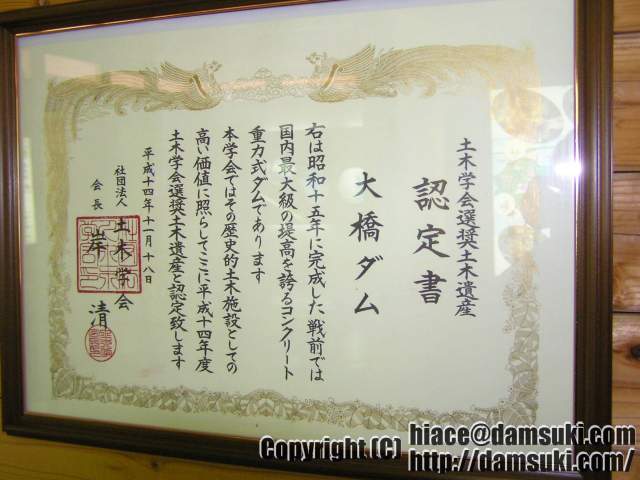 土木学会選奨土木遺産
認定書
大橋ダム
右は昭和十五年に完成した戦前では
国内最大級の堤高を誇るコンクリート
重力式ダムであります
本学会ではその歴史的土木施設としての
高い価値に照らしてここに平成十四年度
土木学会選奨土木遺産と認定致します
平成十四年十一月十八日
社団法人 土木学会
会長 岸 清
Copyright (C) hiace@damsuki.com
http://damsuki.com/